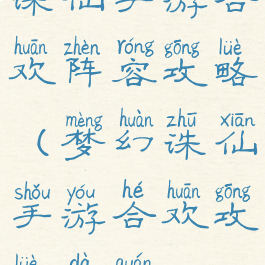 诛仙手游合
huān zhèn róng gōng lüè
欢阵容攻略
mèng huàn zhū xiān
(梦幻诛仙
shǒu yóu hé huān gōng
手游合欢攻
lüè dà quán